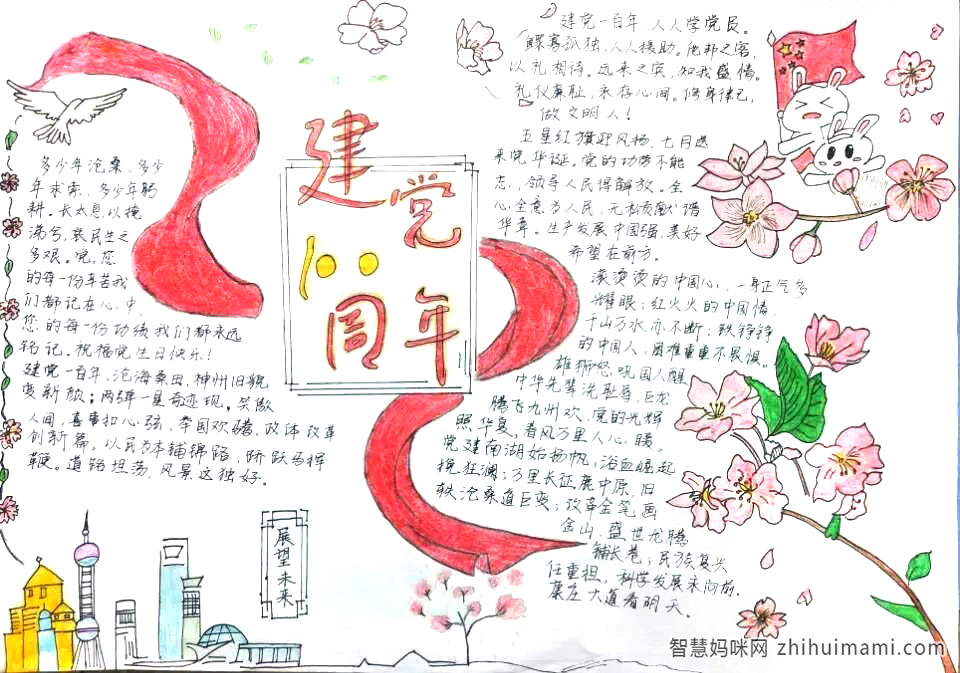 建党
100
周年
多少年沧桑，多少
年求索，多少年躬
耕。长太息以掩
涕兮，哀民生之
多艰。党，您
的每一份辛苦我
们都记在心中，
您的每一份功绩我们都永远
铭记。祝福党生日快乐！
建党一百年，沧海桑田，神州旧貌
变新颜；两弹一星奇迹现，笑傲
人间，喜事扣心弦，举国欢腾，政体改革
创新篇。以民为本铺锦路，骄跃马挥
鞭。道路坦荡，风景这独好。
展望未来
建党一百年 人人学党员。
鳏寡孤独，人人援助。他邦之客，
以礼相待。远来之宾，如我盛情。
礼仪廉耻，永存心间。修身律己，
做文明人！
五星红旗迎风扬，七月迎
来党华诞，党的功劳不能
忘，领导人民得解放。全
心全意为人民，无私贡献谱
华章。生产发展中国强，美好
希望在前方。
滚烫烫的中国心，一身正气多
耀眼；红火火的中国情，
千山万水亦不断；铁铮铮
的中国人，困难重重不畏惧。
雄狮怒吼国人醒
中华先辈洗耻辱，巨龙
腾飞九州欢，党的光辉
照华夏，春风万里人心暖。
党建南湖始扬帆，浴血崛起
挽狂澜；万里长征鹿中原，旧
轶沧桑道巨变；改革金笔画
金山，盛世龙腾
铺长卷；民族复兴
任重担，科学发展永向前。
康庄大道看明天。
智慧妈咪网 zhihuimami.com